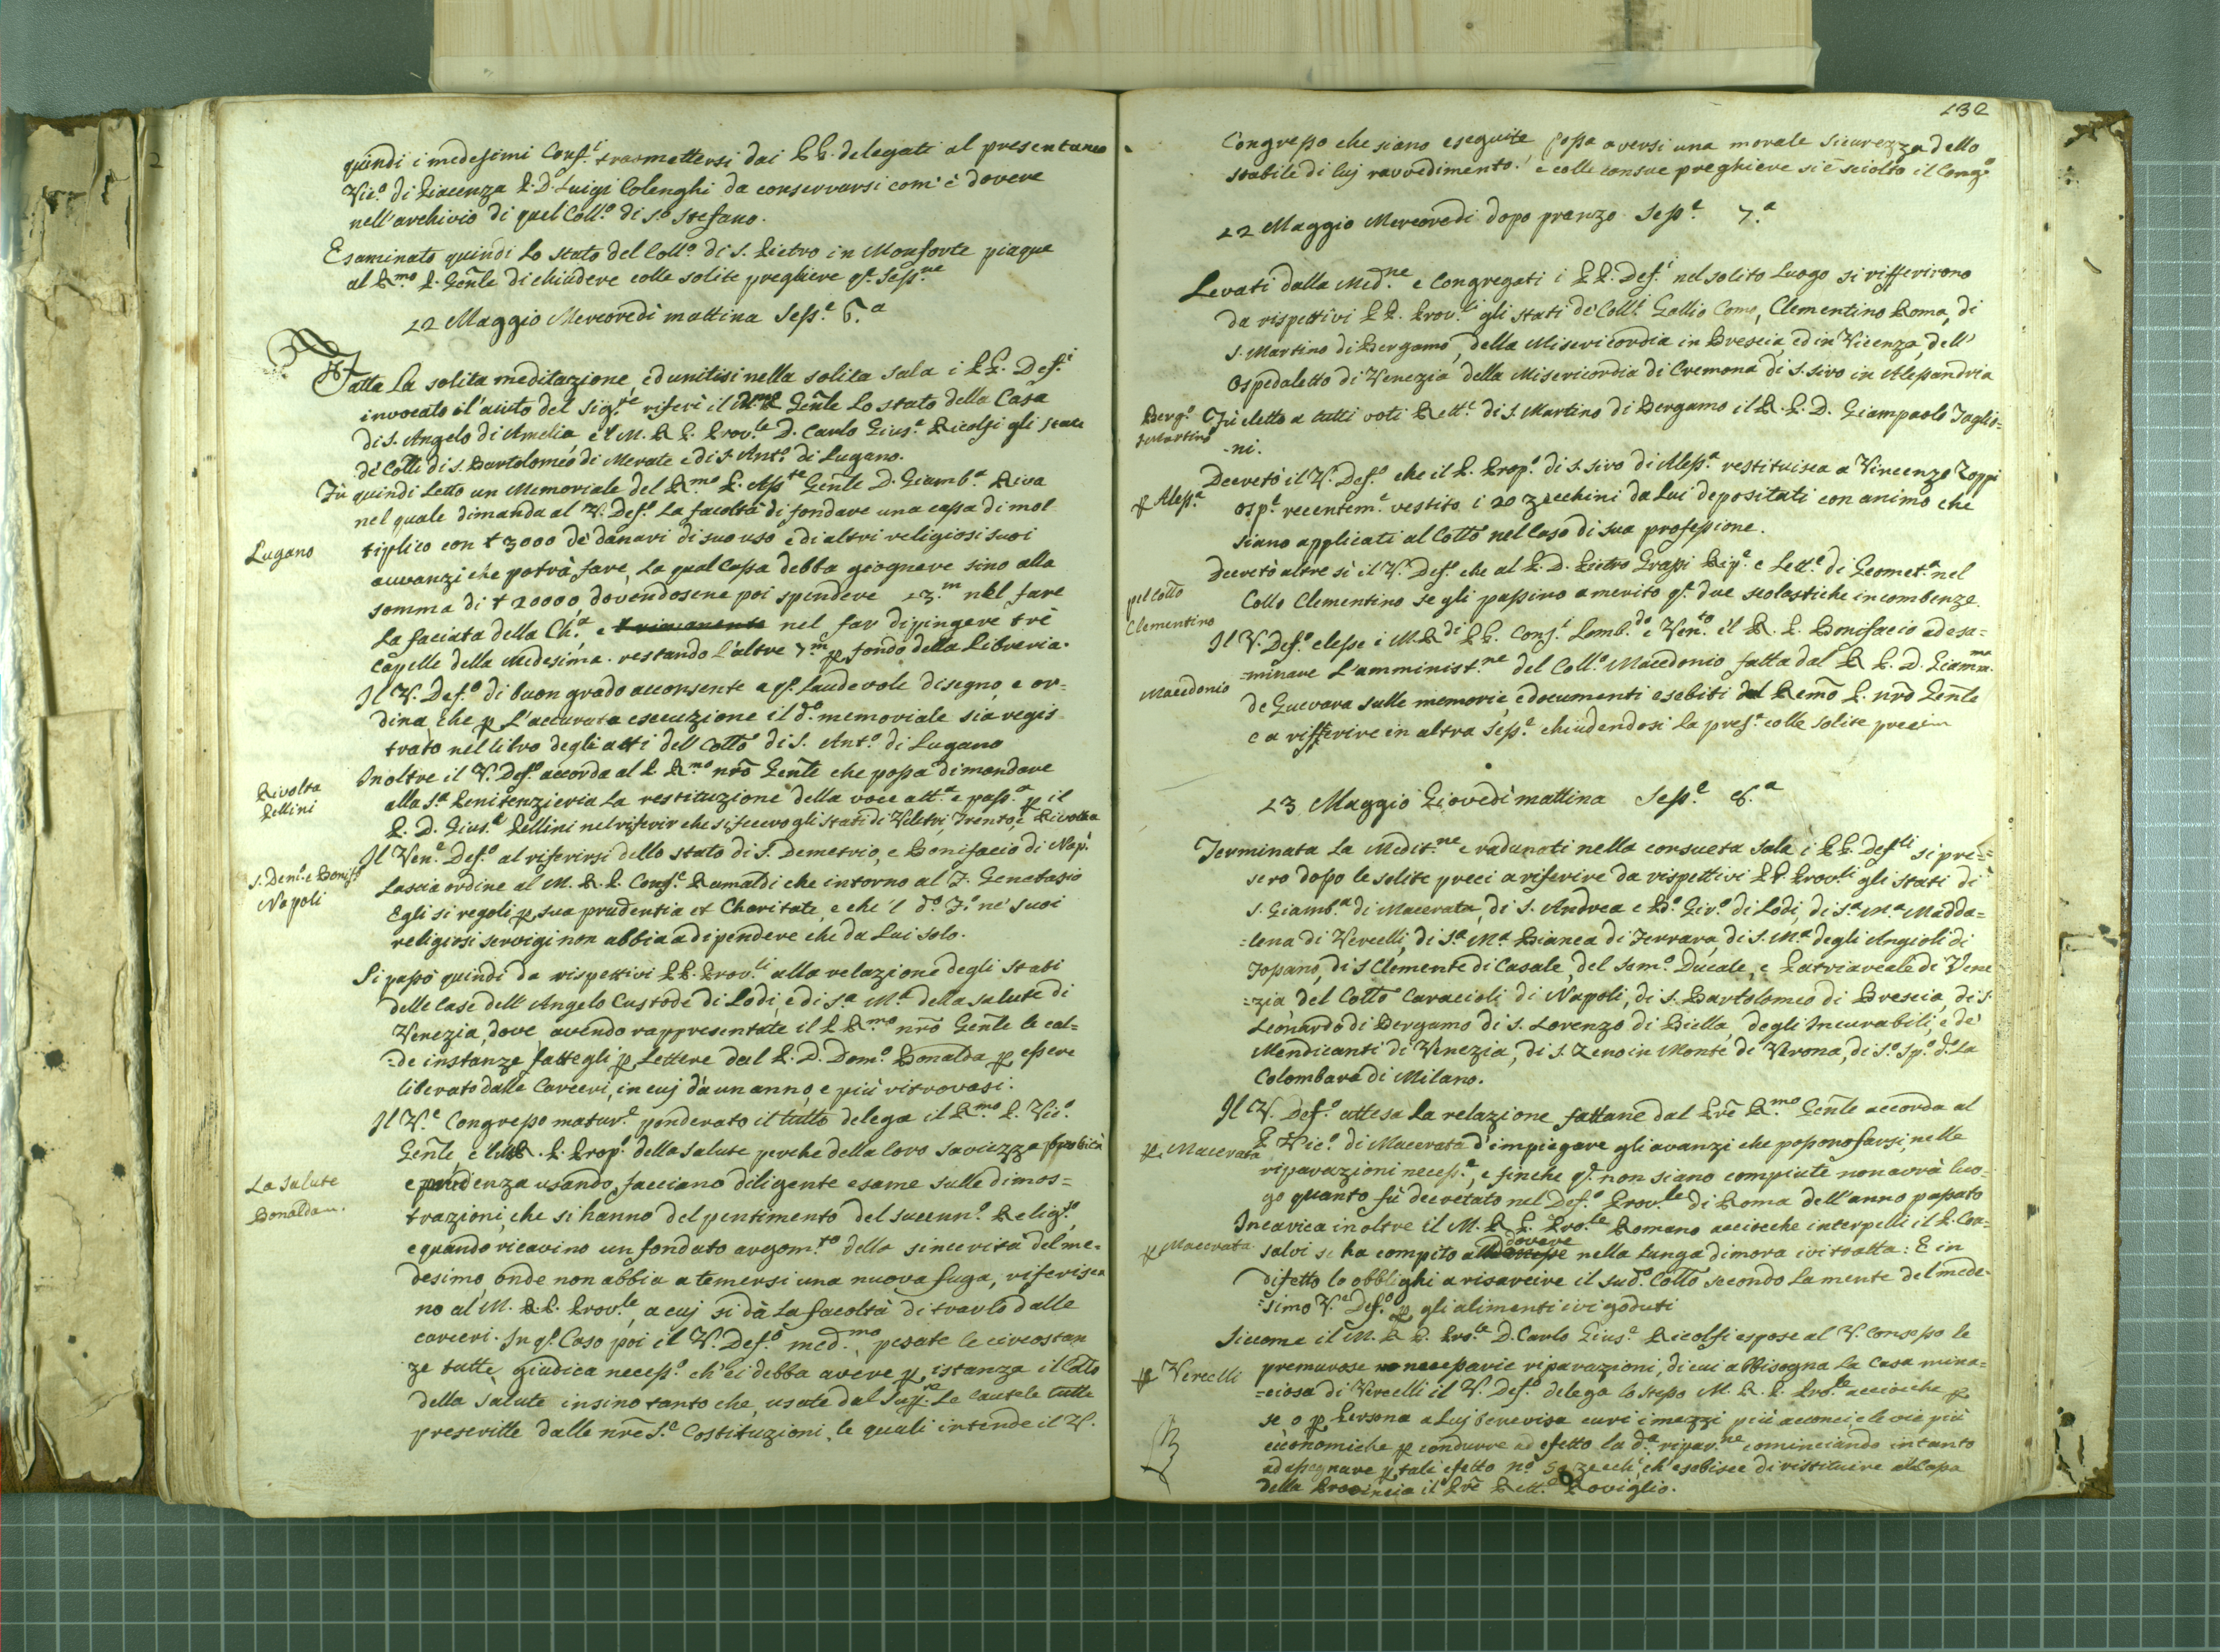 quindi i medesimi Conf.i trasmettersi dai PP. delegati al presentaneo
Vic.o di Piacenza P. D. Luigi Colenghi da conservarsi com' è dovere
nell'archivio di quel Coll.o di S.o Stefano.
Esaminato quindi lo stato del Coll.o di S. Pietro in Monforte piaque
al R.mo P. Gen̄le di chiudere colle solite preghiere q.a Sess.ne
22 Maggio Mercoredì mattina Sess.e 6.a
Fatta la solita meditazione, ed unitisi nella solita sala i PP. Def.i
invocato il l'aiuto del Sig.re riferì il Gen̄le lo stato della Casa
di S. Angelo di Amelia, e 'l M. R. P. Prov.le D. Carlo Gius.e Ricolfi gli stati
de' Colli di S. Bartolomeo di Merate e di S. Ant.o di Lugano.
Lugano
Fù quindi letto un Memoriale del R.mo P. Ass.te Gen̄le D. Giamb.a Riva
nel quale dimanda al V. Def.o la facoltà di fondare una cassa di mol
tiplico con t 3000 de' danari di suo uso e di altri religiosi suoi
auvanzi che potrà fare, la qual Cassa debba giognere sino alla
somma di t 20000, dovendosene poi spendere 13.m nel fare
la faciata della Ch.a e nel far dipingere trè
Capelle della Medesima. restando l'altre 7.m p fondo della Libreria.
Il V. Def.o di buon grado acconsente a q.o laudevole disegno, e or=
dina che p l'accurata esecuzione il d.o memoriale sia regis
trato nel libro degli atti dell Colto di S. Ant.o di Lugano
Rivolta
Pellini
Inoltre il V. Def.o accorda al P. R.mo nr̄o Gen̄le che possa dimandare
alla S.a Penitenzieria la restituzione della voce att.a e pass.a p il
P. D. Gius.e Pellini nel riferir che si fecero gli stati di Velletri, Trento, e Rivolta
S. Dem.o e Bonif.o
Napoli
Il Ven.e Def.o al riferirsi dello stato di S. Demetrio, e Bonifacio di Nap.i
lascia ordine al M. R. P. Cons.e Rumaldi che intorno al F. Genatasio
Egli si regoli p sua prudentia et Charitate, e che 'l d.o F.o ne' suoi
religiosi servigi non abbia a dipendere che da Lui solo.
Si passò quindi da rispettivi PP. Prov.li alla relazione degli Stati
delle Case dell' Angelo Custode di Lodi, e di S.a M.a della salute di
Venezia, dove avendo rappresentate il P. R.mo nr̄o Gen̄le le cal=
=de instanze fattegli p Lettere dal P. D. Dom.o Bonalda p essere
liberato dalle Carceri, in cuj da un anno, e più ritrovasi.
La Salute
Bonalda
Il V.e Congresso matur.e ponderato il tutto delega il R.mo P. Vic.o
Gen̄le e 'l M. R. P. Prop.o della Salute perche della loro saviezza, probità
e prudenza usando, facciano diligente esame sulle dimos=
trazioni, che si hanno del pentimento del succenn.o Relig.so
e quando ricavino un fondato argom.to della sincerità del me=
desimo, onde non abbia a temersi una nuova fuga, riferisca
no al M. R. P. Prov.le, a cuj si dà la facoltà di trarlo dalle
carceri. In q.o Caso poi il V. Def.o med.mo, pesate le circostan
ze tutte, giudica necess.o ch' ei debba avere p istanza il Colto
della Salute insino tanto che, usate dal Sup.re le cautele tutte
prescritte dalle nr̄e S.e Costituzioni, le quali intende il V.
132
Congresso che siano eseguite possa aversi una morale sicurezza dello
stabile di luj ravvedimento. e colle consue preghiere si è sciolto il Cong.o
22 Maggio Mercoredì dopo pranzo Sess.e 7.a
Levati dalla Med.ne e Congregati i PP. Def.i nel solito luogo si rifferirono
da rispettivi PP. Prov.li gli stati de' Coll.i Gallio Como, Clementino Roma, di
S. Martino di Bergamo, della Misericordia in Brescia, ed in Vicenza, dell'
Ospedaletto di Venezia della Misericordia di Cremona di S. Siro in Alessandria
Berg.o
S. Martino
Fù eletto a tutti voti Rett.e di S. Martino di Bergamo il R. P. D. Giampaolo Taglio=
-ni.
p Aless.a
Decretò il V. Def.o che il P. Prop.o di S. Siro di Aless.a restituisca a Vincenzo Zoppi
osp.e recentem.e vestito i 20 zecchini da lui depositati con animo che
siano applicati al Colto nel Caso di sua professione.
pel Colto
Clementino
Decretò altre sì il V. Def.o che al P. D. Pietro Grassi Rip.e e Lett.e di Geomet.a nel
Collo Clementino se gli passino a merito q.e due scolastiche incombenze.
Macedonio
Il V. Def.o elesse i M. R.di PP. Cons.i Lomb.do e Ven.to e 'l R. P. Bonifacio ad esa=
=minare l'amminist.ne del Coll.o Macedonio fatta dal R. P. D. Giamma.
de Guevara sulle memorie, e documenti esebiti dal R.emo P. nr̄o Gen̄le
e a rifferire in altra Sess.e chiudendosi la pres.e colle solite preci
23 Maggio Giovedì mattina Sess.e 8.a
Terminata la Medit.ne e radunati nella consueta sala i PP. Def.li si pre=
sero dopo le solite preci a riferire da rispettivi PP. Prov.li gli stati di
S. Giamb.a di Macerata, di S. Andrea e B.o Gir.o di Lodi, di S.a M.a Madda=
=lena di Vercelli, di S.a M.a Bianca di Ferrara, di S. M.a degli Angioli di
Fossano, di S Clemente di Casale, del Sem.o Ducale, e Patriarcale di Vene
=zia, del Colto Caracioli di Napoli, di S. Bartolomeo di Brescia, di S.
Leonardo di Bergamo di S. Lorenzo di Biella, degli Incurabili, e de'
Mendicanti di Venezia, di S. Zeno in Monte di Verona, di S.o Sp.o d.o La
Colombara di Milano.
p. Macerata
Il V. Def.o attesa la relazione fattane dal Pr̄e R.mo Gen̄le accorda al
P. Vic.o di Macerata d'impiegare gli avanzi, che possono farsi, nelle
riparazioni necess.e, e finche q.e non siano compiute non avrà luo-
go quanto fù decretato nel Def.o Prov.le di Roma dell'anno passato
p Macerata
Incarica inoltre il M. R. P. Pro.le Romano acciocche interpelli il P. Con=
salvi se ha compito al dovere nella lunga dimora ivi tratta: E in
difetto lo obblighi a risarcire il sud.o Colto secondo la mente del mede=
=simo V.e Def.o p gli alimenti ivi goduti
p Vercelli
Siccome il M. R. P. Pro.le D. Carlo Gius.e Ricolfi espose al V. Consesso le
premurose necessarie riparazioni, di cui abbisogna la Casa mina=
=ciosa di Vercelli il V. Def.o delega lo stesso M. R. P. Pro.le acciocche p
se o p Persona a Luj benevisa curi i mezzi più acconci e le vie più
economiche p condurre ad efetto la d.a ripar.ne cominciando intanto
ad assegnare p tale efetto n.o zecch.i, ch' esebisce di restituire alla Cassa
della Provincia il Pr̄e Rett.e Roviglio.